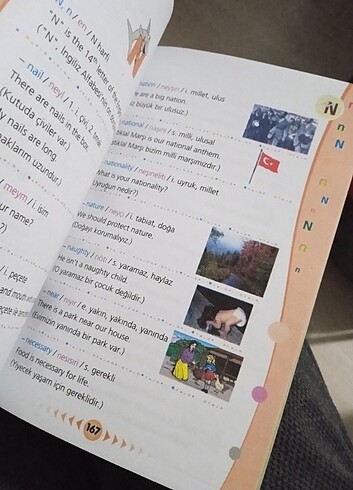 N, n / en / N harfi
"N" is the 14th letter of the
("N", İngiliz Alfabesi'nin on
– nail / neyl / 1. i. çivi, 2. tırnak
There are nails in the box.
(Kutuda çiviler var.)
nails are long.
uzundur.)
meym / i. isim
your name?
i. peçete
and mouth
nation / neyşın / i. millet, ulus
are a big nation.
büyük bir ulusuz.)
national / s. milli, ulusal
İstiklal Marşı is our national anthem.
İstiklal Marşı bizim milli marşımızdır.)
nationality / i. uyruk, millet
What is your nationality?
(Uyruğun nedir?)
– nature / neyçı / i. tabiat, doğa
We should protect nature.
(Doğayı korumalıyız.)
– naughty / noti / s. yaramaz, haylaz
He isn't a naughty child.
(O yaramaz bir çocuk değildir.)
– near / e. yakın, yakında, yanında
There is a park near our house.
(Evimizin yanında bir park var.)
– necessary / nesısıri / s. gerekli
Food is necessary for life.
(Yiyecek yaşam için gereklidir.)
167
N
n
N
n
n
N
n
n